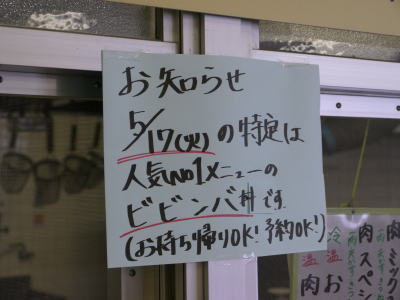 お知らせ
5/17(火)の特定は
人気No1メニューの
ビビンバ丼です
(お持ち帰りOK!予約OK!)
冷 お
温 肉
肉スペシ
肉ミック